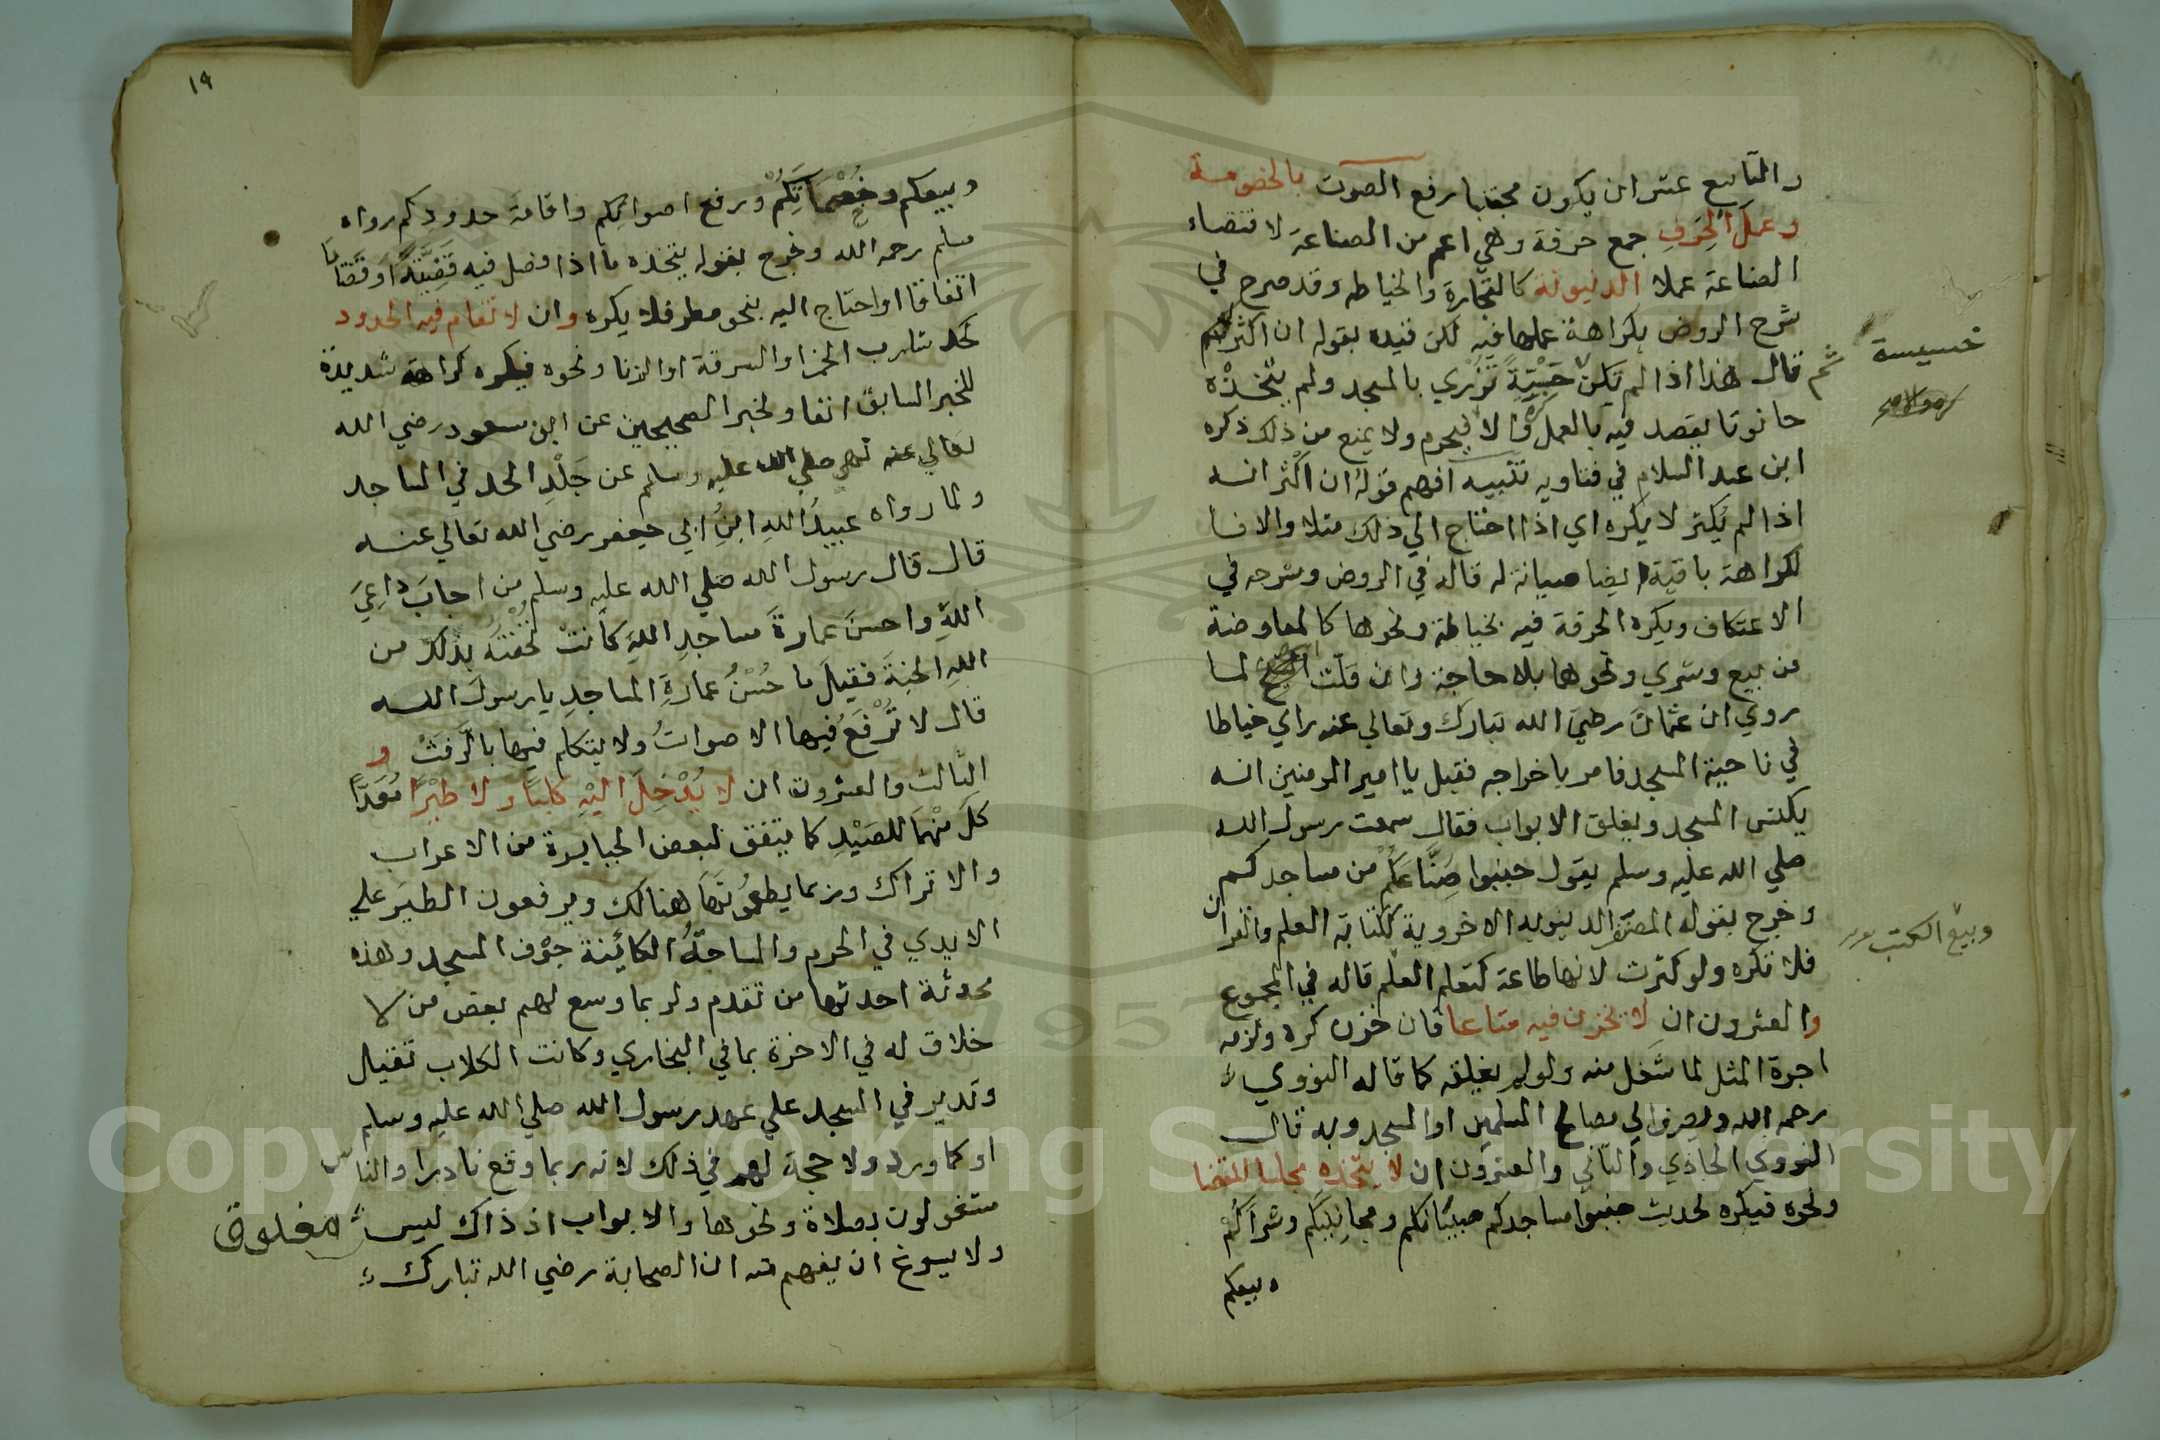 والتاسع عشر ان يكون مجتنبا رفع الصوت بالخصومة
وعمل الحرف جمع حرفة وهي اعم من الصناعة لاقتضاء
الصناعة عملا الدنيوية كالتجارة والخياطه وقد صرح في
شرح الروض بكراهة عملها فيه لكن قيده بقوله ان اكثر ثم
قال هذا اذا لم تكن خسيسة تزري بالمسجد ولم يتخذه
حانوتا يقصد فيه بالعمل والا فيحرم ولا يمنع من ذلك ذكره
ابن عبد السلام في فتاويه تنبيه افهم قوله ان اكثر انه
اذا لم يكثر لا يكره اي اذا احتاج الي ذلك مثلا والا فا
لكراهة باقية ايضا صيانة له قاله في الروض وشرحه في
الاعتكاف ويكره الحرفة فيه بخياطة ونحوها كالمعاوضة
من بيع وشري ونحوهما بلا حاجة وان قلت لما
روي ان عثمان رضي الله تبارك وتعالي عنه راي خياطا
في ناحية المسجد فامر باخراجه فقيل يا امير المومنين انه
يكنس المسجد ويغلق الابواب فقال سمعت رسول الله
صلي الله عليه وسلم يقول جنبوا صناعكم من مساجدكم
وخرج بقوله المصنف الدنيويه الاخروية ككتابة العلم والقران
فلا تكره ولو كثرت لانها طاعة كتعلم العلم قاله في المجموع
والعشرون ان لا يخزن فيه متاعا فان خزن كره ولزمه
اجرة المثل لما شغل منه ولو لم يغلقه كما قاله النووي
رحمه الله ويصرف الي مصالح المسلمين او المسجد وبه قال
النووي الحادي والثاني والعشرون ان لا يتخذه مجلسا للقضا
ونحوه فيكره لحديث جنبوا مساجدكم صبيانكم ومجانينكم وشراكم
وبيعكم
خسيسة
وبيع الكتب
١٩
وبيعكم وخصماتكم ورفع اصواتكم واقامة حدودكم رواه
مسلم رحمه الله وخرج بقوله يتخذه ما اذا فصل فيه قضية او قضايا
اتفاقا او احتاج اليه بنحو مطر فلا يكره وان لا تقام فيه الحدود
كحد شارب الخمر او السرقة او الزنا ونحوه فيكره كراهة شديدة
للخبر السابق انفا ولخبر الصحيحين عن ابن مسعود رضي الله
تعالي عنه نهي صلي الله عليه وسلم عن جلد الحد في المساجد
ولما رواه عبيد الله ابن ابي جعفر رضي الله تعالي عنه
قال قال رسول الله صلي الله عليه وسلم من اجاب داعي
الله واحسن عمارة مساجد الله كانت تحفته بذلك من
الله الجنة فقيل ما حسن عمارة المساجد يا رسول الله
قال لا ترفع فيها الاصوات ولا يتكلم فيها بالرفث و
الثالث والعشرون ان لا يدخل اليه كلبا ولا طيرا معدا
كل منهما للصيد كما يتفق لبعض الجبابرة من الاعراب
والاتراك وربما يطعمونها هنالك ويرفعون الطير علي
الايدي في الحرم والساحة الكائنة جوف المسجد وهذه
محدثة احدثها من تقدم ولربما وسع لهم بعض من لا
خلاق له في الاخرة بما في البخاري وكانت الكلاب تقبل
وتدبر في المسجد علي عهد رسول الله صلي الله عليه وسلم
او كما ورد ولا حجة لهم في ذلك لانه ربما وقع نادرا والناس
مشغولون بصلاة ونحوها والابواب اذ ذاك ليست مغلوق
ولا يسوغ ان يفهم منه ان الصحابة رضي الله تبارك
1957
Copyright © King Saud University